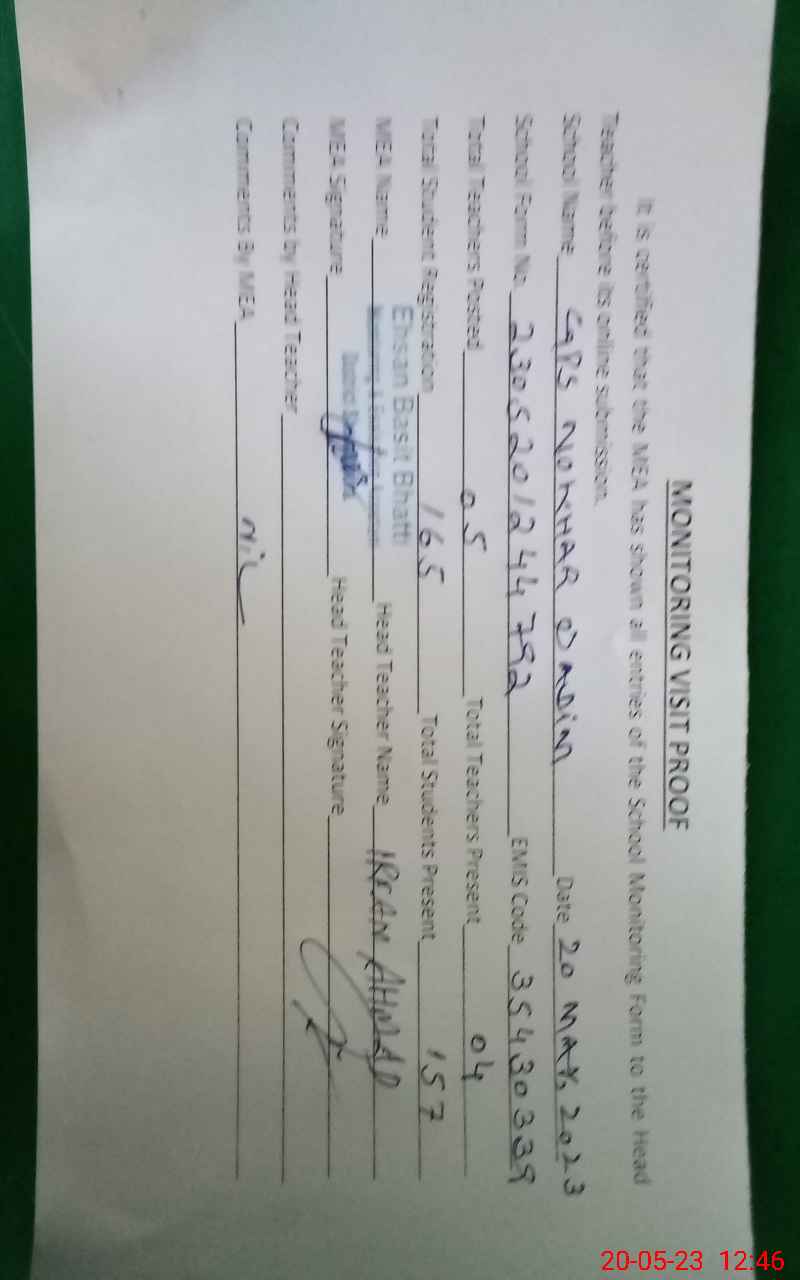 MONITORING VISIT PROOF
It is certified that the MEA has shown all entries of the School Monitoring Form to the Head
Treacher before its online submission.
School Name GPS NOWHAR Date 20 MAY. 2023
School Form No. 2305201244792 EMIS Code 35430339
Total Teachers Posted 05 Total Teachers Present 04
Total Student Registration 165 Total Students Present 157
Ehsan Basit Bhatti
MEA Name Head Teacher Name IRFAN AHMAD
MEA Signature Head Teacher Signature
Comments by Head Teacher
Comments By MEA Nil
20-05-23 12:46